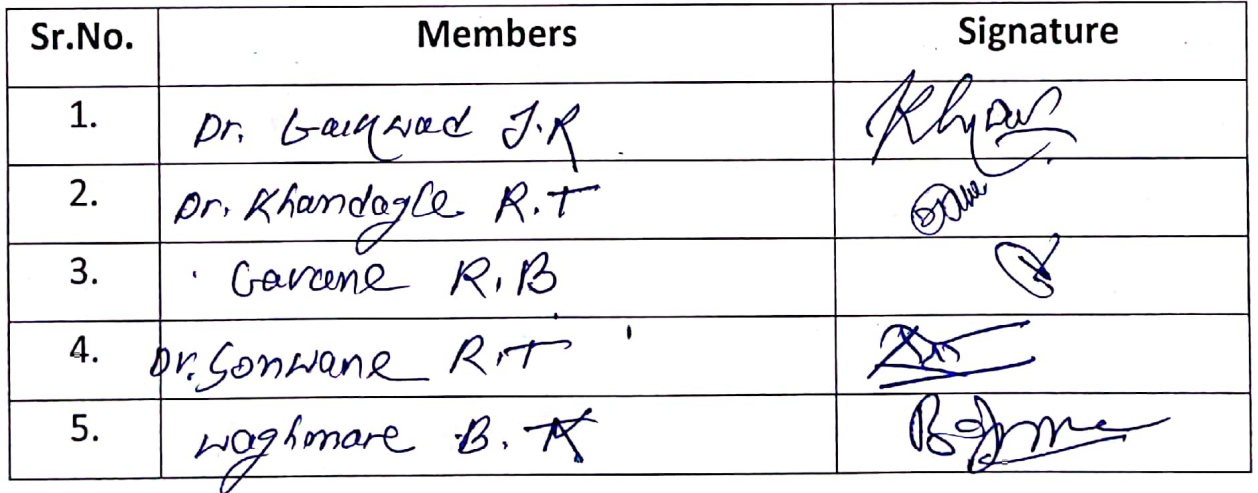 Sr.No. Members Signature
1. Dr. Gaikwad J.R
2. Dr. Khandagle R.T
3. Gavane R.B
4. Dr. Sonwane R.T
5. Waghmare B.